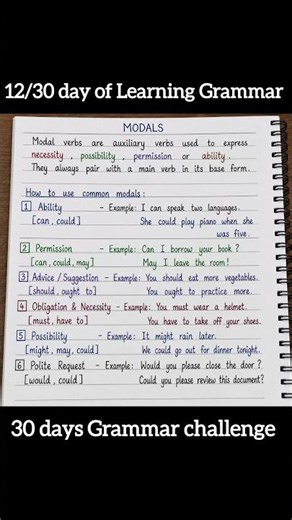 12/30 day of Learning Grammar
MODALS
Modal verbs are auxiliary verbs used to express
necessity, possibility, permission or ability.
They always pair with a main verb in its base form.
How to use common modals:
1 Ability - Example: I can speak two languages.
[can, could] She could play piano when she
was five.
2 Permission - Example: Can I borrow your book?
[can, could, may] May I leave the room!
3 Advice / Suggestion - Example: You should eat more vegetables.
[should, ought to] You ought to practice more.
4 Obligation & Necessity - Example: You must wear a helmet.
[must, have to] You have to take off your shoes.
5 Possibility - Example: It might rain later.
[might, may, could] We could go out for dinner tonight.
6 Polite Request - Example: Would you please close the door?
[would, could] Could you please review this document?
30 days Grammar challenge